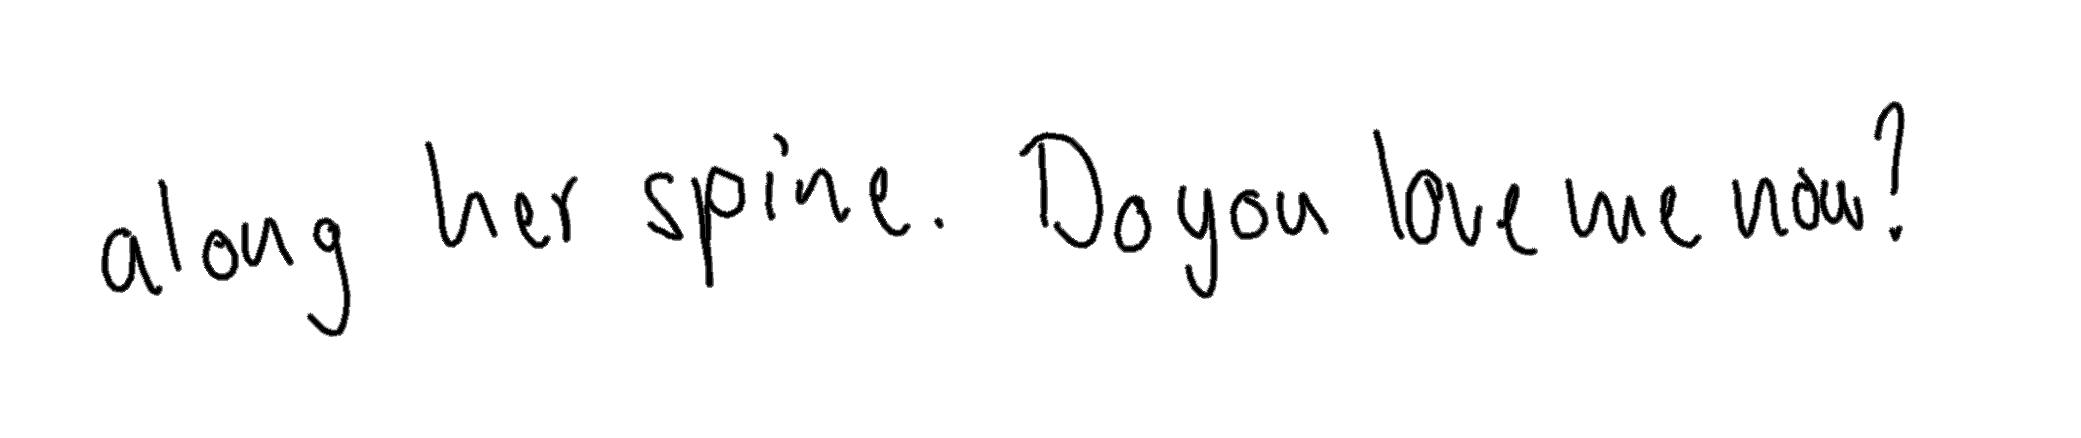 along her spine. Do you love me now?